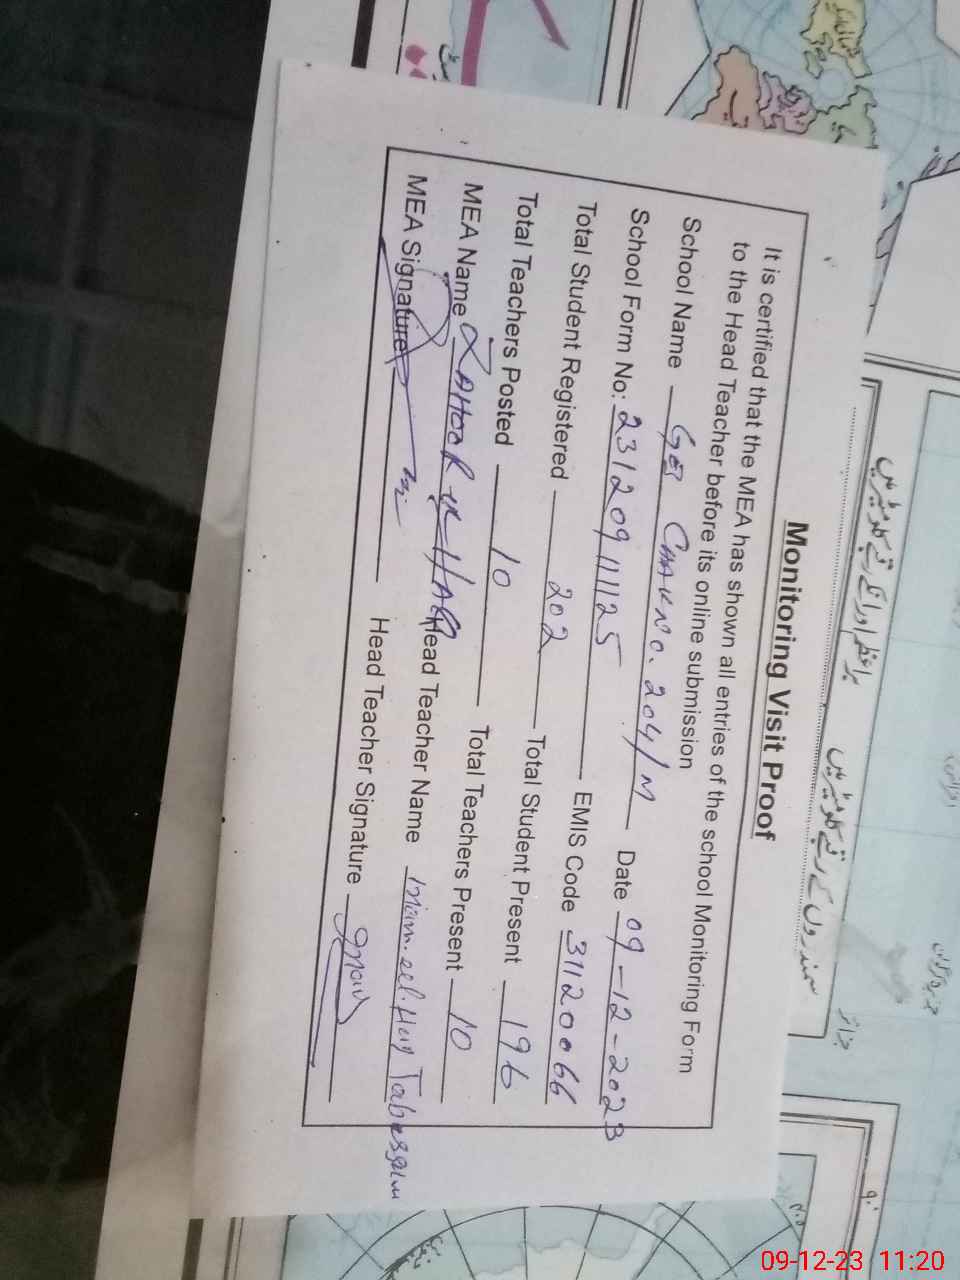 Monitoring Visit Proof
It is certified that the MEA has shown all entries of the school Monitoring Form
to the Head Teacher before its online submission
School Name GES CHAK NO. 204/M Date 09-12-2023
School Form No: 231209111125 EMIS Code 31120066
Total Student Registered 202 Total Student Present 196
Total Teachers Posted 10 Total Teachers Present 10
MEA Name ZAHOOR UL HAQ Head Teacher Name Inam.ul.Haq Tabassum
MEA Signature Head Teacher Signature
براعظم اور انکے رقبے کلومیٹر میں
سمندروں کے رقبے کلومیٹر میں
09-12-23 11:20